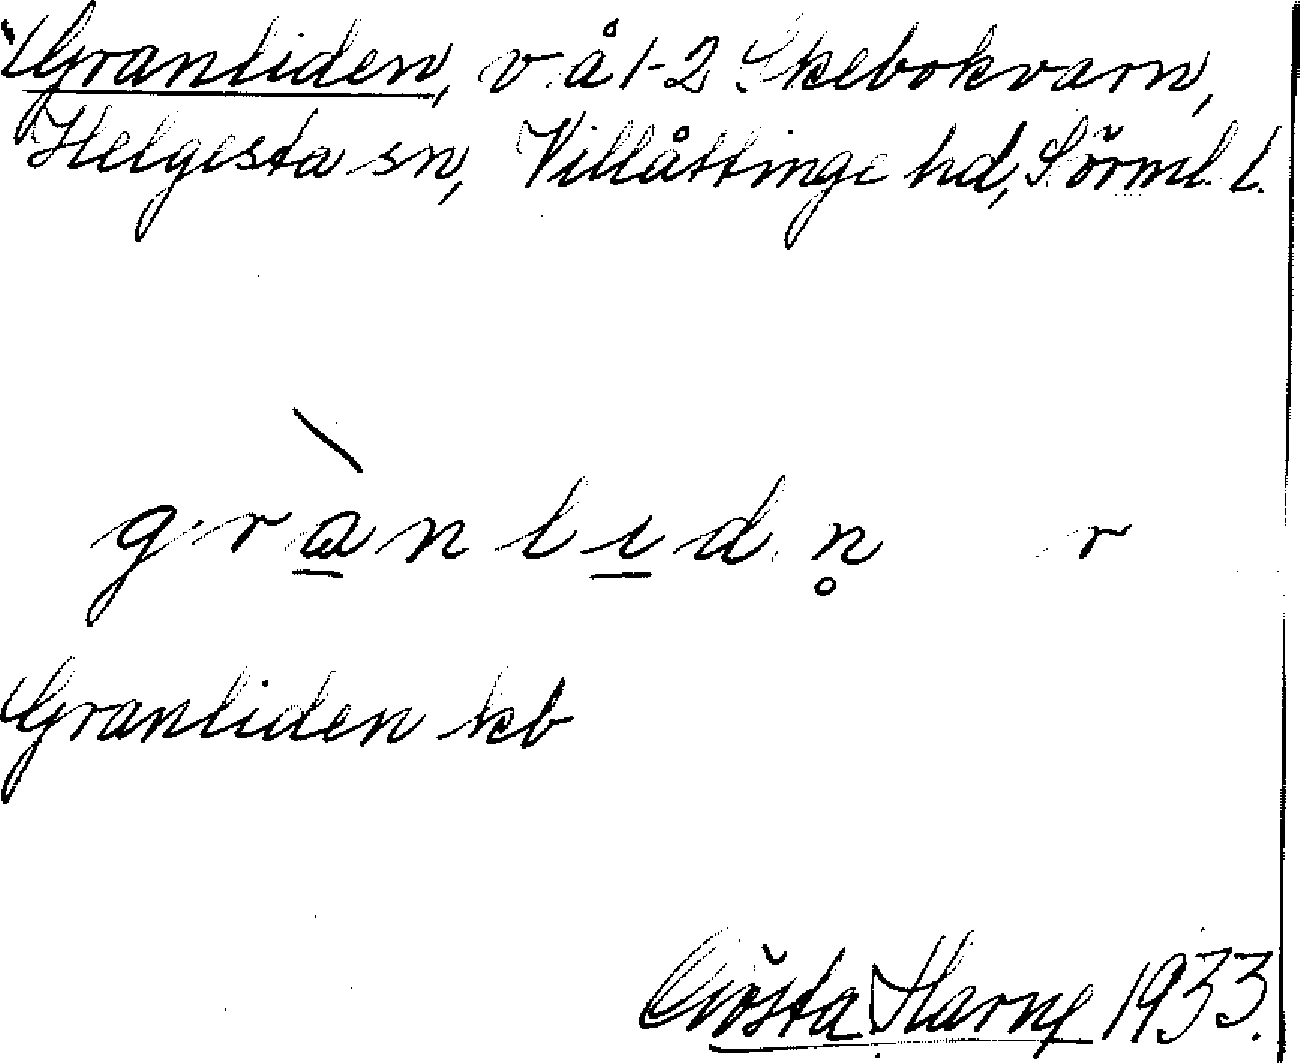 Granliden, v å 1-2 Skebokvarn,
Helgesta sn, Villåttinge hd, Sörml. l.
grànlıdn̥ r
Granliden kb
Gösta Harne 1933.